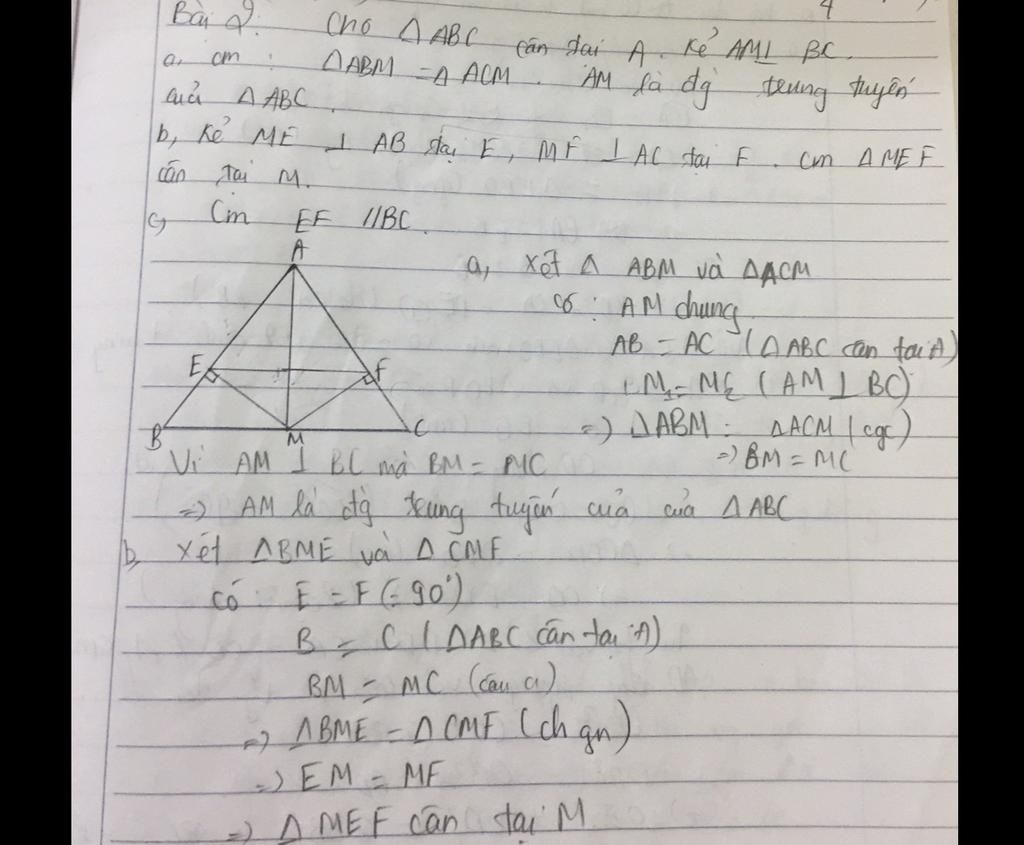 Bài 2: Cho △ABC cân tại A. Kẻ AM⊥ BC.
a, cm : △ABM = △ACM. AM là đg trung tuyến
của △ABC.
b, Kẻ ME ⊥ AB tại E, MF ⊥ AC tại F. Cm △MEF
cân tại M.
c, Cm EF //BC.
A
E
F
B
M
C
a, Xét △ ABM và △ACM
có: AM chung
AB = AC (△ABC cân tại A)
M1 = M2 (AM ⊥ BC)
=> △ABM = △ACM (cgc)
=> BM = MC
Vì AM ⊥ BC mà BM = MC
=> AM là đg trung tuyến của của △ABC
b, Xét △BME và △CMF
có: E = F (= 90°)
B = C (△ABC cân tại A)
BM = MC (câu a)
=> △BME = △CMF (ch gn)
=> EM = MF
=> △MEF cân tại M